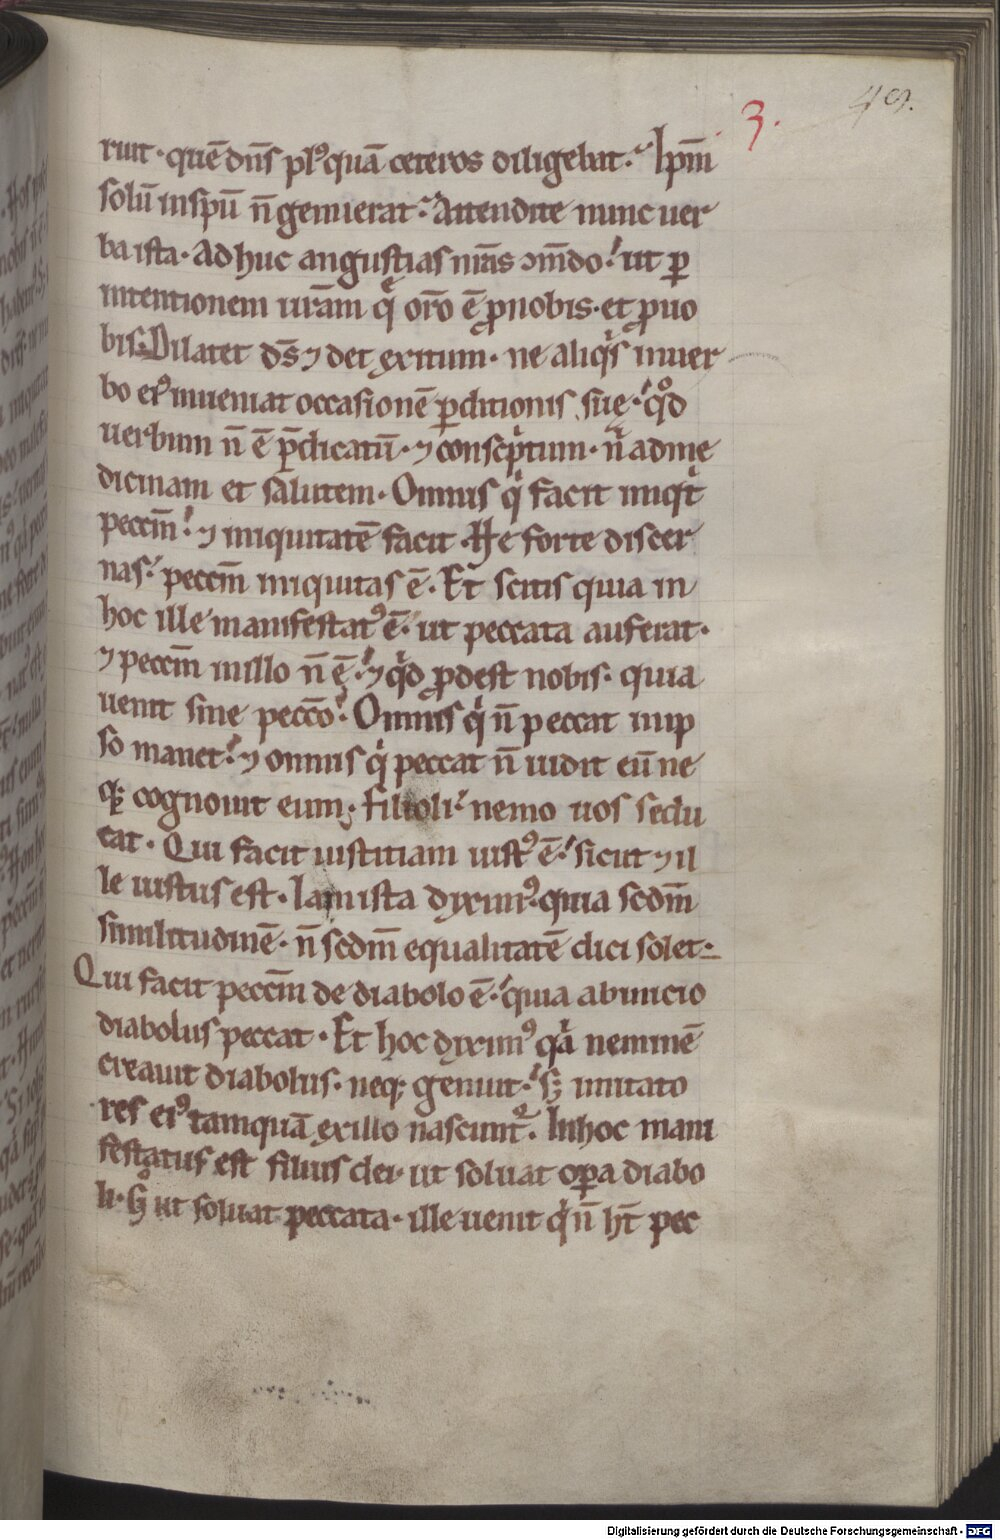 3. 49.
ruit· quē dn̄s plꝰ quā ceteros diligebat. Ipm̄
solū in spū n̄ genuerat. Attendite nunc uer
ba ista· Adhuc angustias nr̄as ↄm̄do. ut ꝑ
intentionem ur̄am q̄ oro ē ꝓ nobis· et ꝓ uo
bis. Dilatet ds̄ ⁊ det exitum· ne aliqͥs in uer
bo eiꝰ inueniat occasionē ꝑditionis suę. qͦd
uerbum n̄ ē p̄dicatū· ⁊ conscͥptum· nͥ ad me
dicinam et salutem· Omnis qͥ facit iniqͥt
peccm̄. ⁊ iniquitatē facit· Ne forte discer
nas. peccm̄ iniquitas ē· Et scitis quia in
hoc ille manifestatꝰ ē. ut peccata auferat·
⁊ peccm̄ in illo n̄ ē. ⁊ qͥd ꝓdest nobis· quia
uenit sine pecc̄o. Omnis qͥ n̄ peccat in ip
so manet. ⁊ omnis qͥ peccat n̄ uidit eū ne
qꝫ cognouit eum· filioli. nemo uos sedu
cat· Qui facit iustitiam iustꝰ ē. sicut ⁊ il
le iustus est· Iam ista diximꝰ· quia scdm̄
similitudinē· n̄ scdm̄ equalitatē dici solet·
Qui facit peccm̄ de diabolo ē. quia ab inicio
diabolus peccat· Et hoc diximꝰ qͣ neminē
creauit diabolus· neqꝫ genuit. sꝫ imitato
res eiꝰ tamquā ex illo nascunt᷑. In hoc mani
festatus est filius dei· ut soluat oꝑa diabo
li· gͦ ut soluat peccata· ille uenit qͥ n̄ ht̄ pec
Digitalisierung gefördert durch die Deutsche Forschungsgemeinschaft - DFG